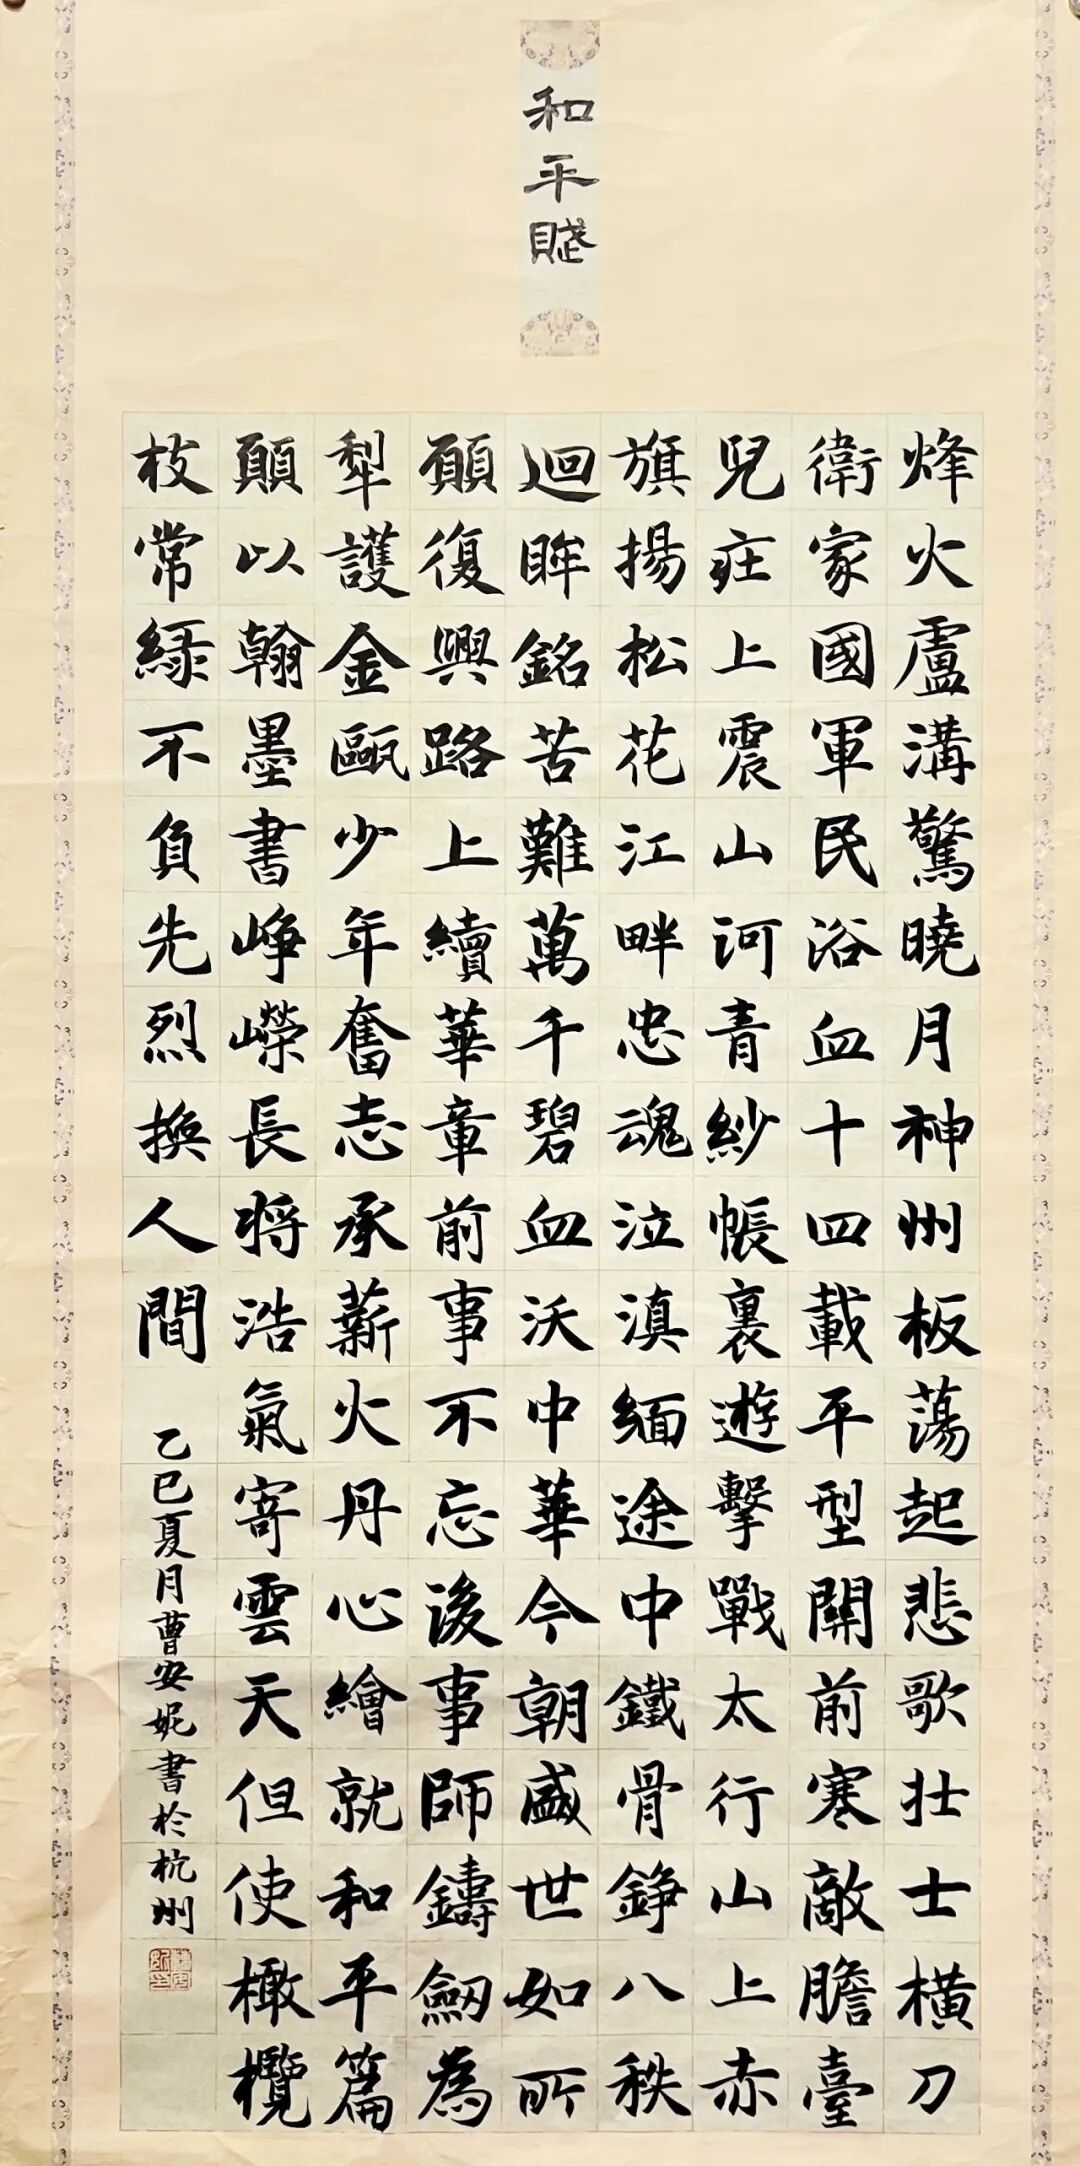 和平賦
烽火盧溝驚曉月神州板蕩起悲歌壯士橫刀
衛家國軍民浴血十四載平型關前寒敵膽臺
兒莊上震山河青紗帳裏遊擊戰太行山上赤
旗揚松花江畔忠魂泣滇緬途中鐵骨錚八秩
迴眸銘苦難萬千碧血沃中華今朝盛世如所
願復興路上續華章前事不忘後事師鑄劒為
犁護金甌少年奮志承薪火丹心繪就和平篇
願以翰墨書崢嶸長將浩氣寄雲天但使橄欖
枝常綠不負先烈換人間
乙巳夏月曹安妮書於杭州